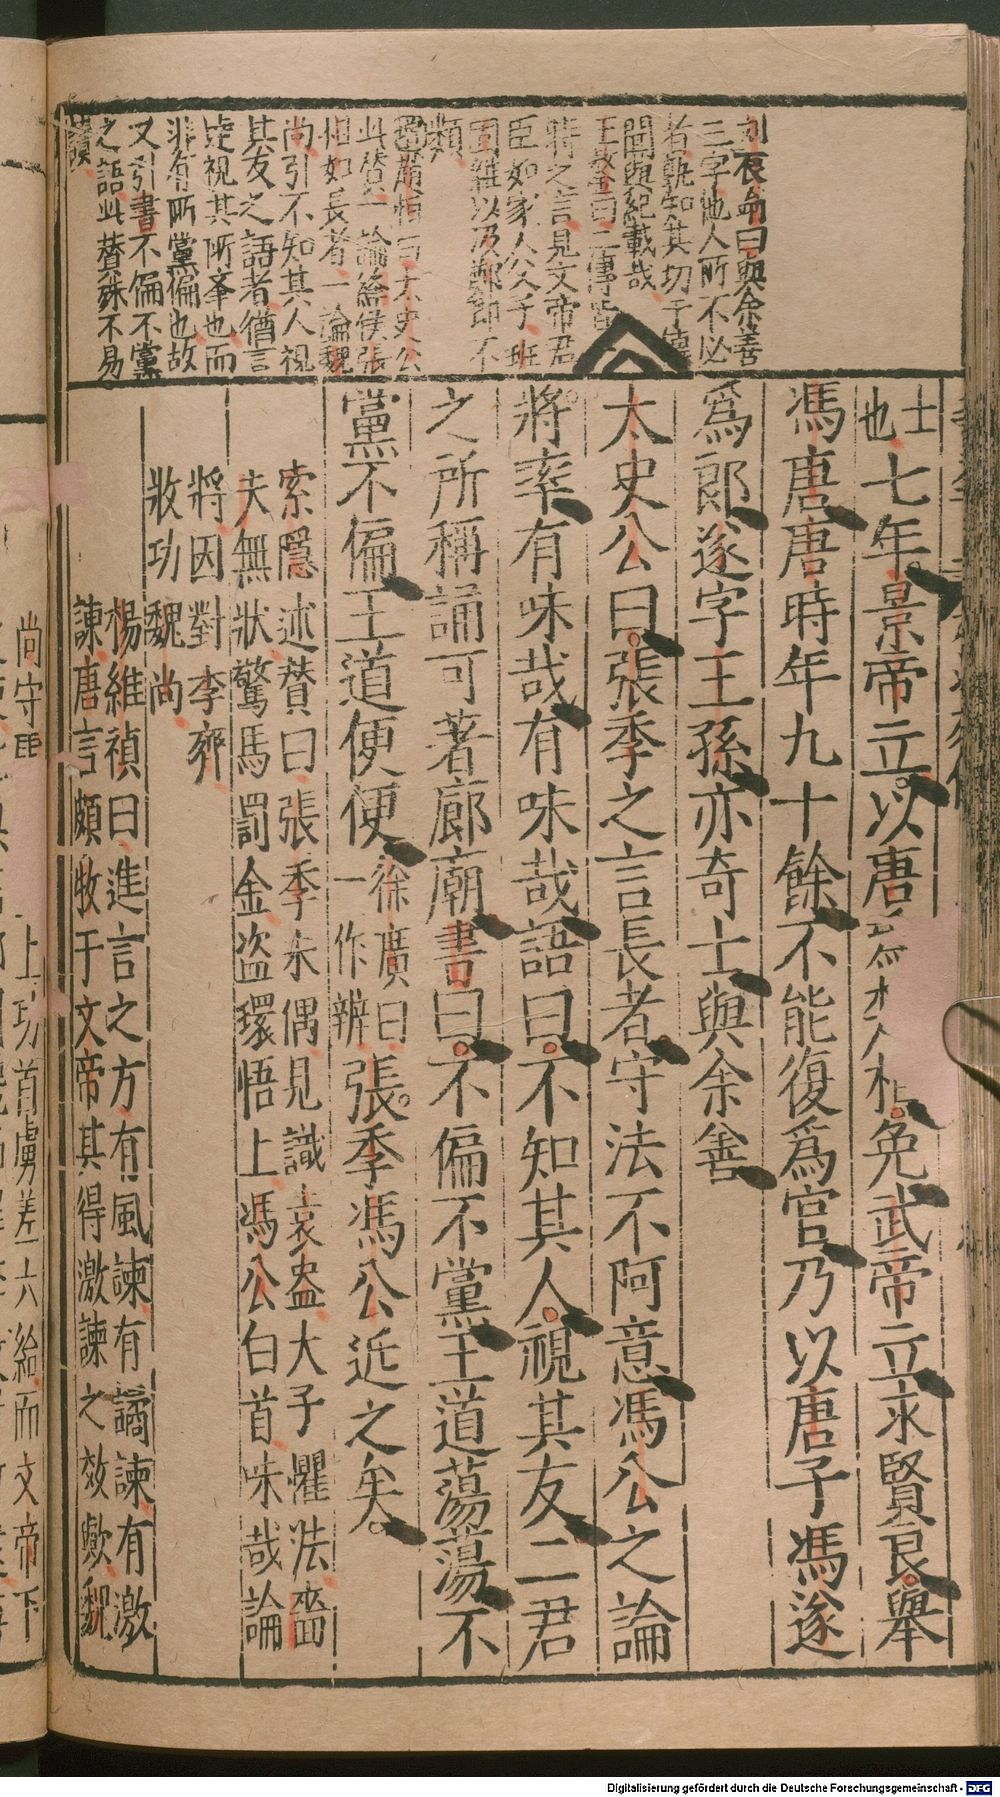 劉辰翁曰與余善
三字他人所不必
者孰知其切于傳
聞與紀載哉
王鏊曰二傳皆一
時之言見文帝君
臣如家人父子班
固雖以汲鄭即不
類
此贊一論絳侯張
相如長者一論魏
尚引不知其人視
其友之語者猶言
堯視其所峯也而
非有所黨偏也故
又引書不偏不黨
之語此贊殊不易
讀
士
也七年景帝立以唐爲楚相免武帝立求賢良舉
馮唐唐時年九十餘不能復爲官乃以唐子馮遂
爲郎遂字王孫亦奇士與余善
太史公曰張季之言長者守法不阿意馮公之論
將率有味哉有味哉語曰不知其人視其友二君
之所稱誦可著廊廟書曰不偏不黨王道蕩蕩不
黨不偏王道便便徐廣曰一作辨張季馮公近之矣
索隱述贊曰張季未偶見識袁盎大子懼法嗇
夫無狀驚馬罰金盜環悟上馮公白首味哉論
將因對李齊
收功魏尚
楊維禎曰進言之方有風諫有譎諫有激
諫唐言頗牧于文帝其得激諫之效歟魏
尚守
上功首虜差六給而文帝下
Digitalisierung gefördert durch die Deutsche Forschungsgemeinschaft - DFG